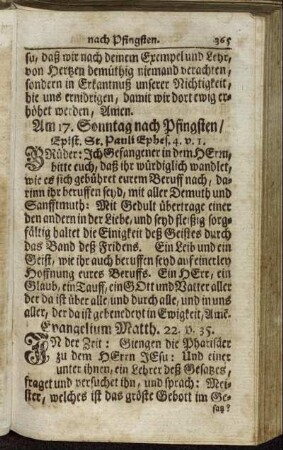 nach Pfingsten. 365
su, daß wir nach deinem Exempel und Lehr,
von Hertzen demüthig niemand verachten,
sondern in Erkantnuß unserer Nichtigkeit,
hie uns ernidrigen, damit wir dort ewig er-
höhet werden, Amen.
Am 17. Sonntag nach Pfingsten/
Epist. St. Pauli Ephes. 4. v. 1.
BRüder: Ich Gefangener in dem HErrn,
bitte euch, daß ihr würdiglich wandlet,
wie es sich gebühret eurem Beruff nach, da-
rinn ihr beruffen seyd, mit aller Demuth und
Sanfftmuth: Mit Gedult übertrage einer
den andern in der Liebe, und seyd fleißig sorg-
fältig haltet die Einigkeit deß Geistes durch
das Band deß Fridens. Ein Leib und ein
Geist, wie ihr auch beruffen seyd auf einerley
Hoffnung eures Beruffs. Ein HErr, ein
Glaub, ein Tauff, ein GOtt und Vatter aller
der da ist über alle, und durch alle, und in uns
aller, der da ist gebenedeyt in Ewigkeit, Amē.
Evangelium Matth. 22. v. 35.
IN der Zeit: Giengen die Phariseer
zu dem HErrn JEsu: Und einer
unter ihnen, ein Lehrer deß Gesatzes,
fraget und versuchet ihn, und sprach: Mei-
ster, welches ist das gröste Gebott im Ge-
satz?